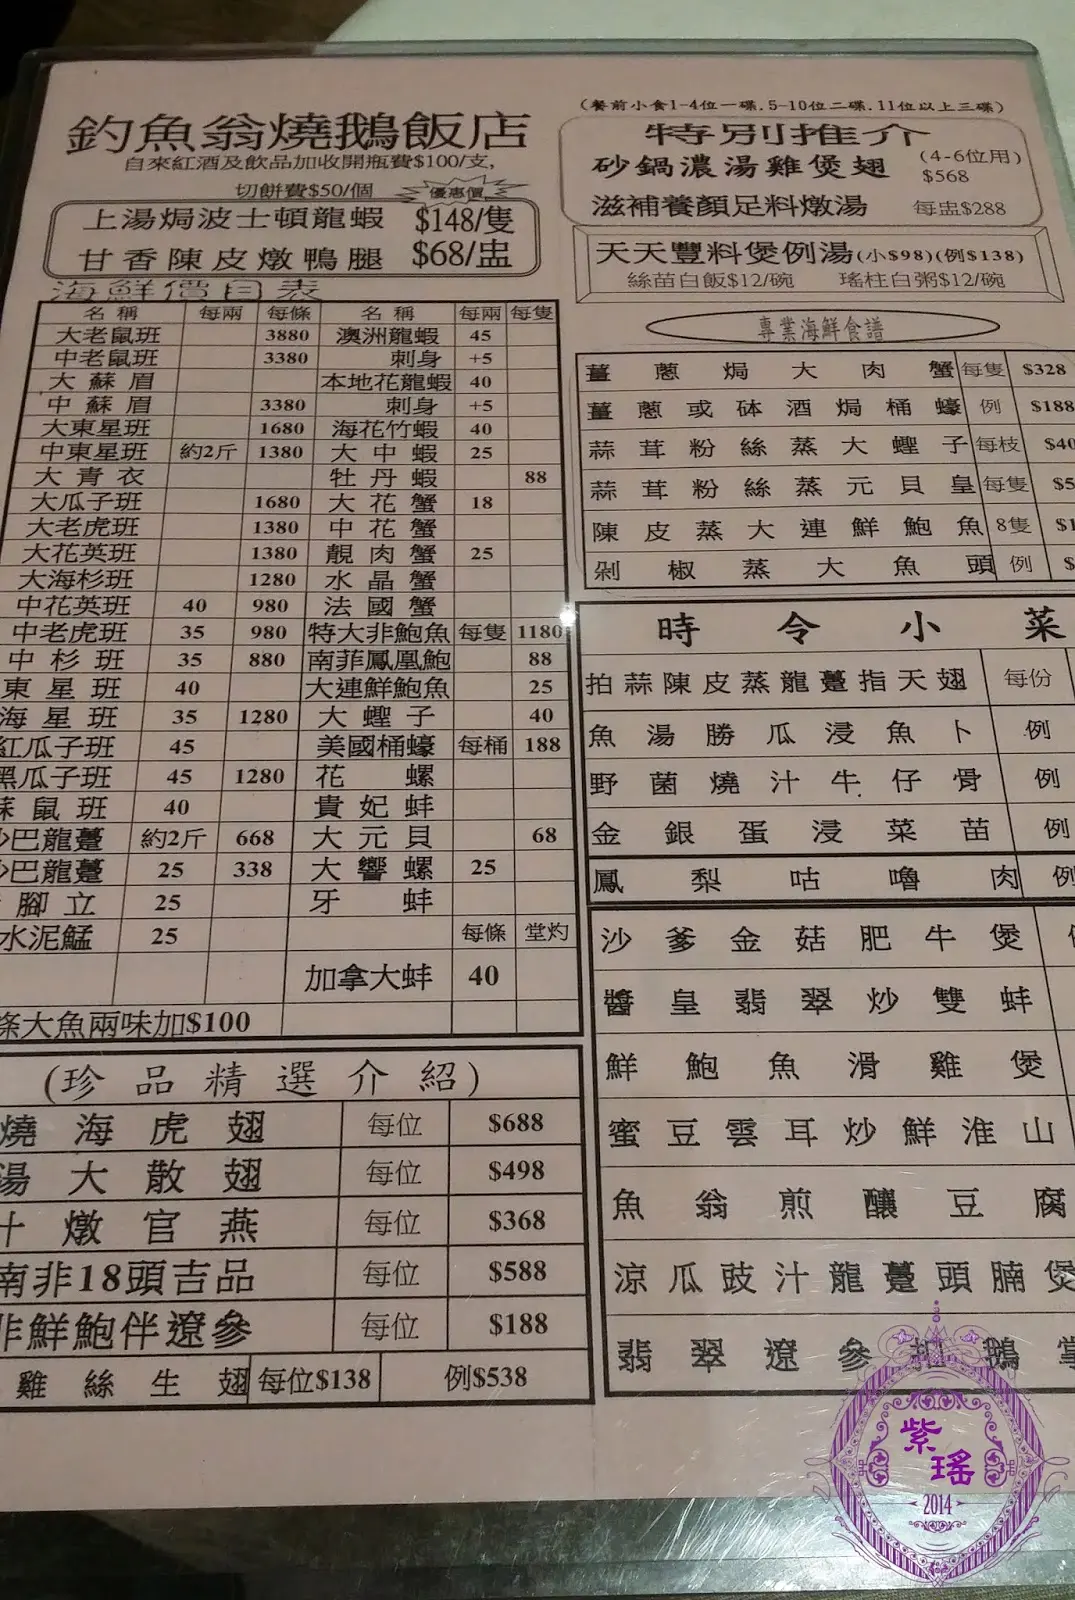 釣魚翁燒鵝飯店
自來紅酒及飲品加收開瓶費$100/支,
切餅費$50/個
優惠價
上湯焗波士頓龍蝦 $148/隻
甘香陳皮燉鴨腿 $68/盅
海鮮價目表
名稱 每兩 每條 名稱 每兩 每隻
大老鼠班 3880 澳洲龍蝦 45
中老鼠班 3380 刺身 +5
大蘇眉 本地花龍蝦 40
中蘇眉 3380 刺身 +5
大東星班 1680 海花竹蝦 40
中東星班 約2斤 1380 大中蝦 25
大青衣 牡丹蝦 88
大瓜子班 1680 大花蟹 18
大老虎班 1380 中花蟹
大花英班 1380 靚肉蟹 25
大海杉班 1280 水晶蟹
中花英班 40 980 法國蟹
中老虎班 35 980 特大非鮑魚 每隻 1180
中杉班 35 880 南菲鳳凰鮑 88
東星班 40 大連鮮鮑魚 25
海星班 35 1280 大蟶子 40
紅瓜子班 45 美國桶蠔 每桶 188
黑瓜子班 45 1280 花螺
鼠班 40 貴妃蚌
巴龍躉 約2斤 668 大元貝 68
巴龍躉 25 338 大響螺 25
腳立 25 牙蚌
水泥鯭 25 每條 堂灼
加拿大蚌 40
條大魚兩味加$100
(珍品精選介紹)
燒海虎翅 每位 $688
湯大散翅 每位 $498
汁燉官燕 每位 $368
南非18頭吉品 每位 $588
非鮮鮑伴遼參 每位 $188
雞絲生翅 每位$138 例$538
(餐前小食1-4位一碟.5-10位二碟.11位以上三碟)
特別推介
砂鍋濃湯雞煲翅 (4-6位用) $568
滋補養顏足料燉湯 每盅$288
天天豐料煲例湯(小$98)(例$138)
絲苗白飯$12/碗 瑤柱白粥$12/碗
專業海鮮食譜
薑蔥焗大肉蟹 每隻 $328
薑蔥或砵酒焗桶蠔 例 $188
蒜茸粉絲蒸大蟶子 每枝 $40
蒜茸粉絲蒸元貝皇 每隻
陳皮蒸大連鮮鮑魚 8隻
剁椒蒸大魚頭 例
時令小菜
拍蒜陳皮蒸龍躉指天翅 每份
魚湯勝瓜浸魚卜 例
野菌燒汁牛仔骨 例
金銀蛋浸菜苗 例
鳳梨咕嚕肉 例
沙爹金菇肥牛煲
醬皇翡翠炒雙蚌
鮮鮑魚滑雞煲
蜜豆雲耳炒鮮淮山
魚翁煎釀豆腐
涼瓜豉汁龍躉頭腩煲
翡翠遼參扣鵝掌
紫瑤
2014